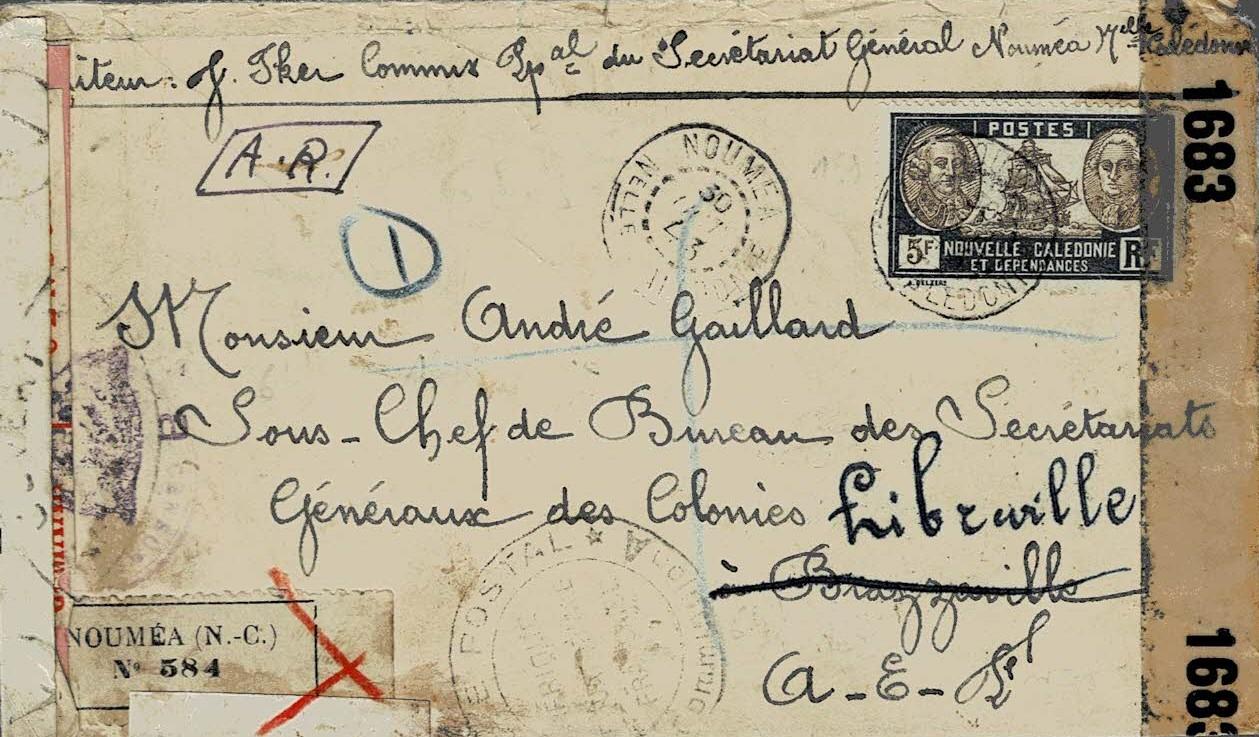 iteur: J. Iker Commis Ppal du Secrétariat Général Nouméa Nelle Calédonie
A.R.
1
NOUMEA
NELLE
30
43
POSTES
5F
NOUVELLE CALEDONIE
ET DEPENDANCES
RF
LEDONI
1683
Monsieur André Gaillard
Sous-Chef de Bureau des Secrétariats
Généraux des Colonies Libreville
à Brazzaville
A-E-F
E POSTAL ★
NOUMÉA (N.-C.)
N° 584
1683